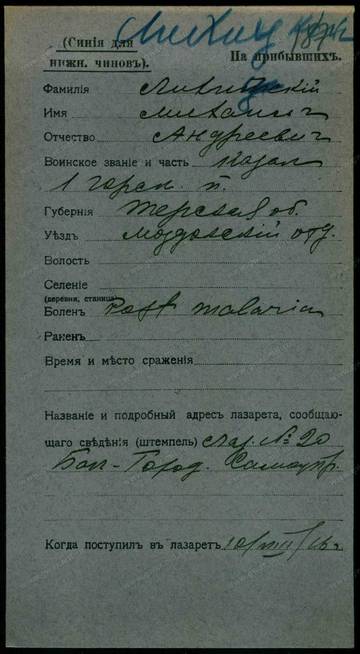 (Синія для
нижн. чиновъ).
На прибывшихъ.
Фамилія
Имя Михаилъ
Отчество Андреевич
Воинское званіе и часть
1 горск. п.
Губернія Терская об.
Уѣздъ Моздокскій отд.
Волость
Селеніе
(деревня, станица)
Боленъ Post malaria
Раненъ
Время и мѣсто сраженія
Названіе и подробный адресъ лазарета, сообщаю-
щаго свѣдѣнія (штемпель) Лаз. № 20
Бак-Город. Самоупр.
Когда поступилъ въ лазаретъ 10/VIII/16 г.